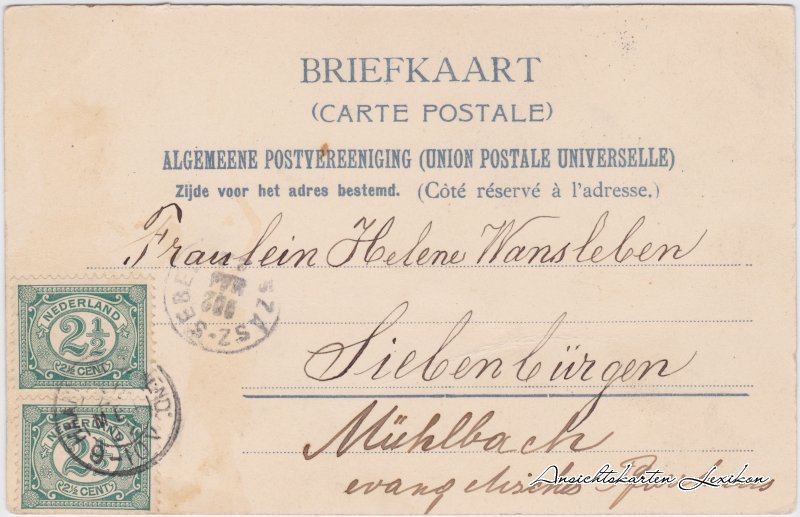 BRIEFKAART
(CARTE POSTALE)
ALGEMEENE POSTVEREENIGING (UNION POSTALE UNIVERSELLE)
Zijde voor het adres bestemd. (Côté réservé à l'adresse.)
Fraulein Helene Wansleben
SZÁSZ-SEBE
902
Siebenbürgen
Mühlbach
evangelisches Pfarrhaus
NEDERLAND
2½
(2½ CENT)
NEDERLAND
2½
(2½ CENT)
Ansichtskarten Lexikon